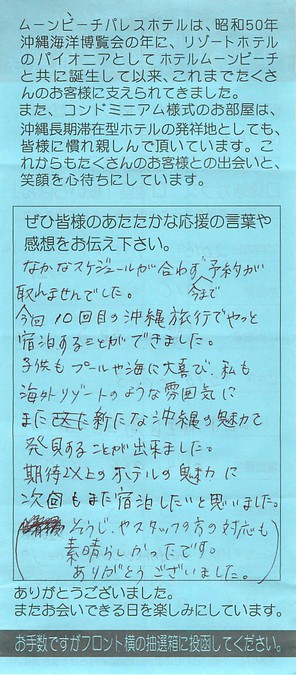 ムーンビーチパレスホテルは、昭和50年
沖縄海洋博覧会の年に、リゾートホテル
のパイオニアとしてホテルムーンビーチ
と共に誕生して以来、これまでたくさん
のお客様に支えられてきました。
また、コンドミニアム様式のお部屋は、
沖縄長期滞在型ホテルの発祥地としても、
皆様に慣れ親しんで頂いています。こ
れからもたくさんのお客様との出会いと、
笑顔を心待ちにしています。
ぜひ皆様のあたたかな応援の言葉や
感想をお伝え下さい。
なかなスケジュールが合わず 予約が
取れませんでした。 今まで
今回10回目の沖縄旅行でやっと
宿泊することができました。
子供もプールや海に大喜び、私も
海外リゾートのような雰囲気に
また 新たな沖縄の魅力を
発見することが出来ました。
期待以上のホテルの魅力に
次回もまた宿泊したいと思いました。
そうじやスタッフの方の対応も
素晴らしかったです。
ありがとうございました。
ありがとうございました。
またお会いできる日を楽しみにしています。
お手数ですがフロント横の抽選箱に投函してください。